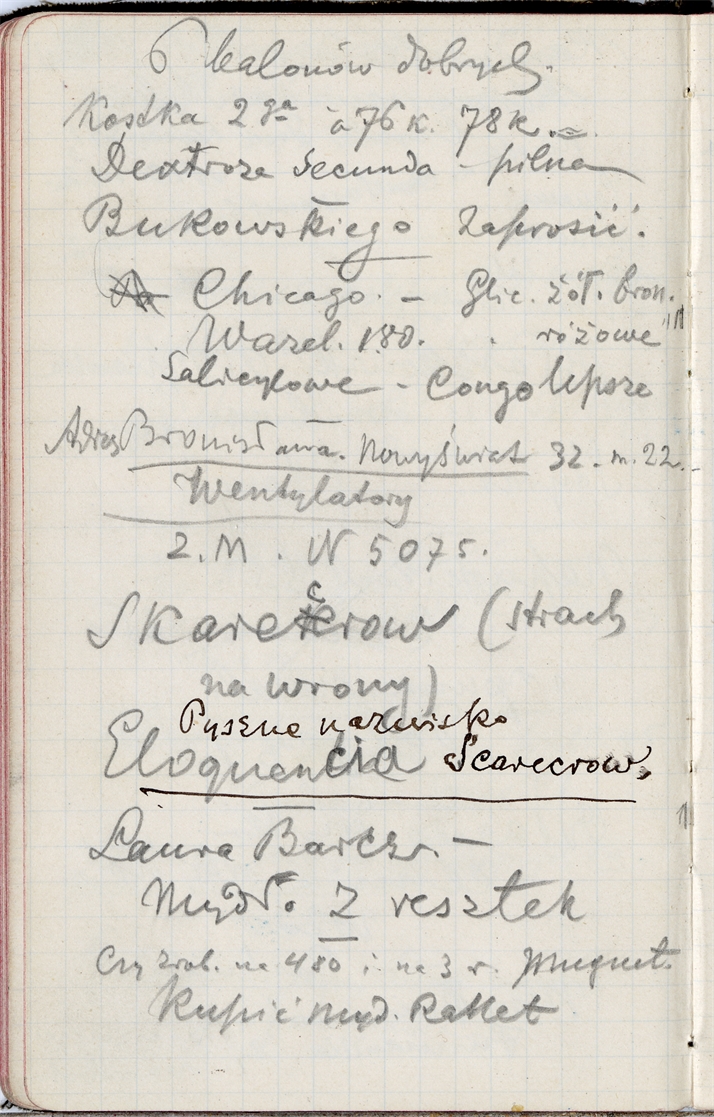 6 balonów dobrych.
Kostka 2 ga à 76 k. 78 k.
Dextroza Secunda - pilne
Bukowskiego zaprosić.
Chicago. - Glic. żół. bron.
Wazel. 180. różowe "
Salicylowe - Congo lepsze
Adres Bronisława. Nowyświat 32. m. 22.
Wentylatory
2. M. N 5075.
Skarecrow (strach
na wrony)
Pyszne nazwisko
Eloquencia Scarecrow.
Laura Barcz. -
Mydł. z resztek
Czy zrob. na 480 i na 3 r. Muguet.
Kupić myd. Rallet